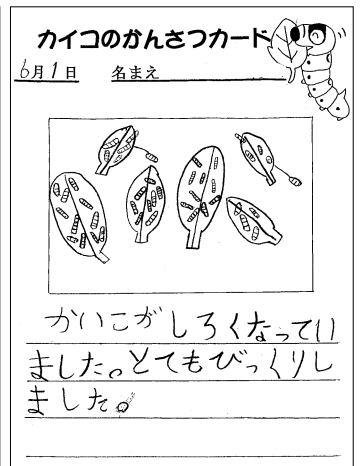 カイコのかんさつカード
6月1日 名まえ
かいこがしろくなってい
ました。とてもびっくりし
ました。